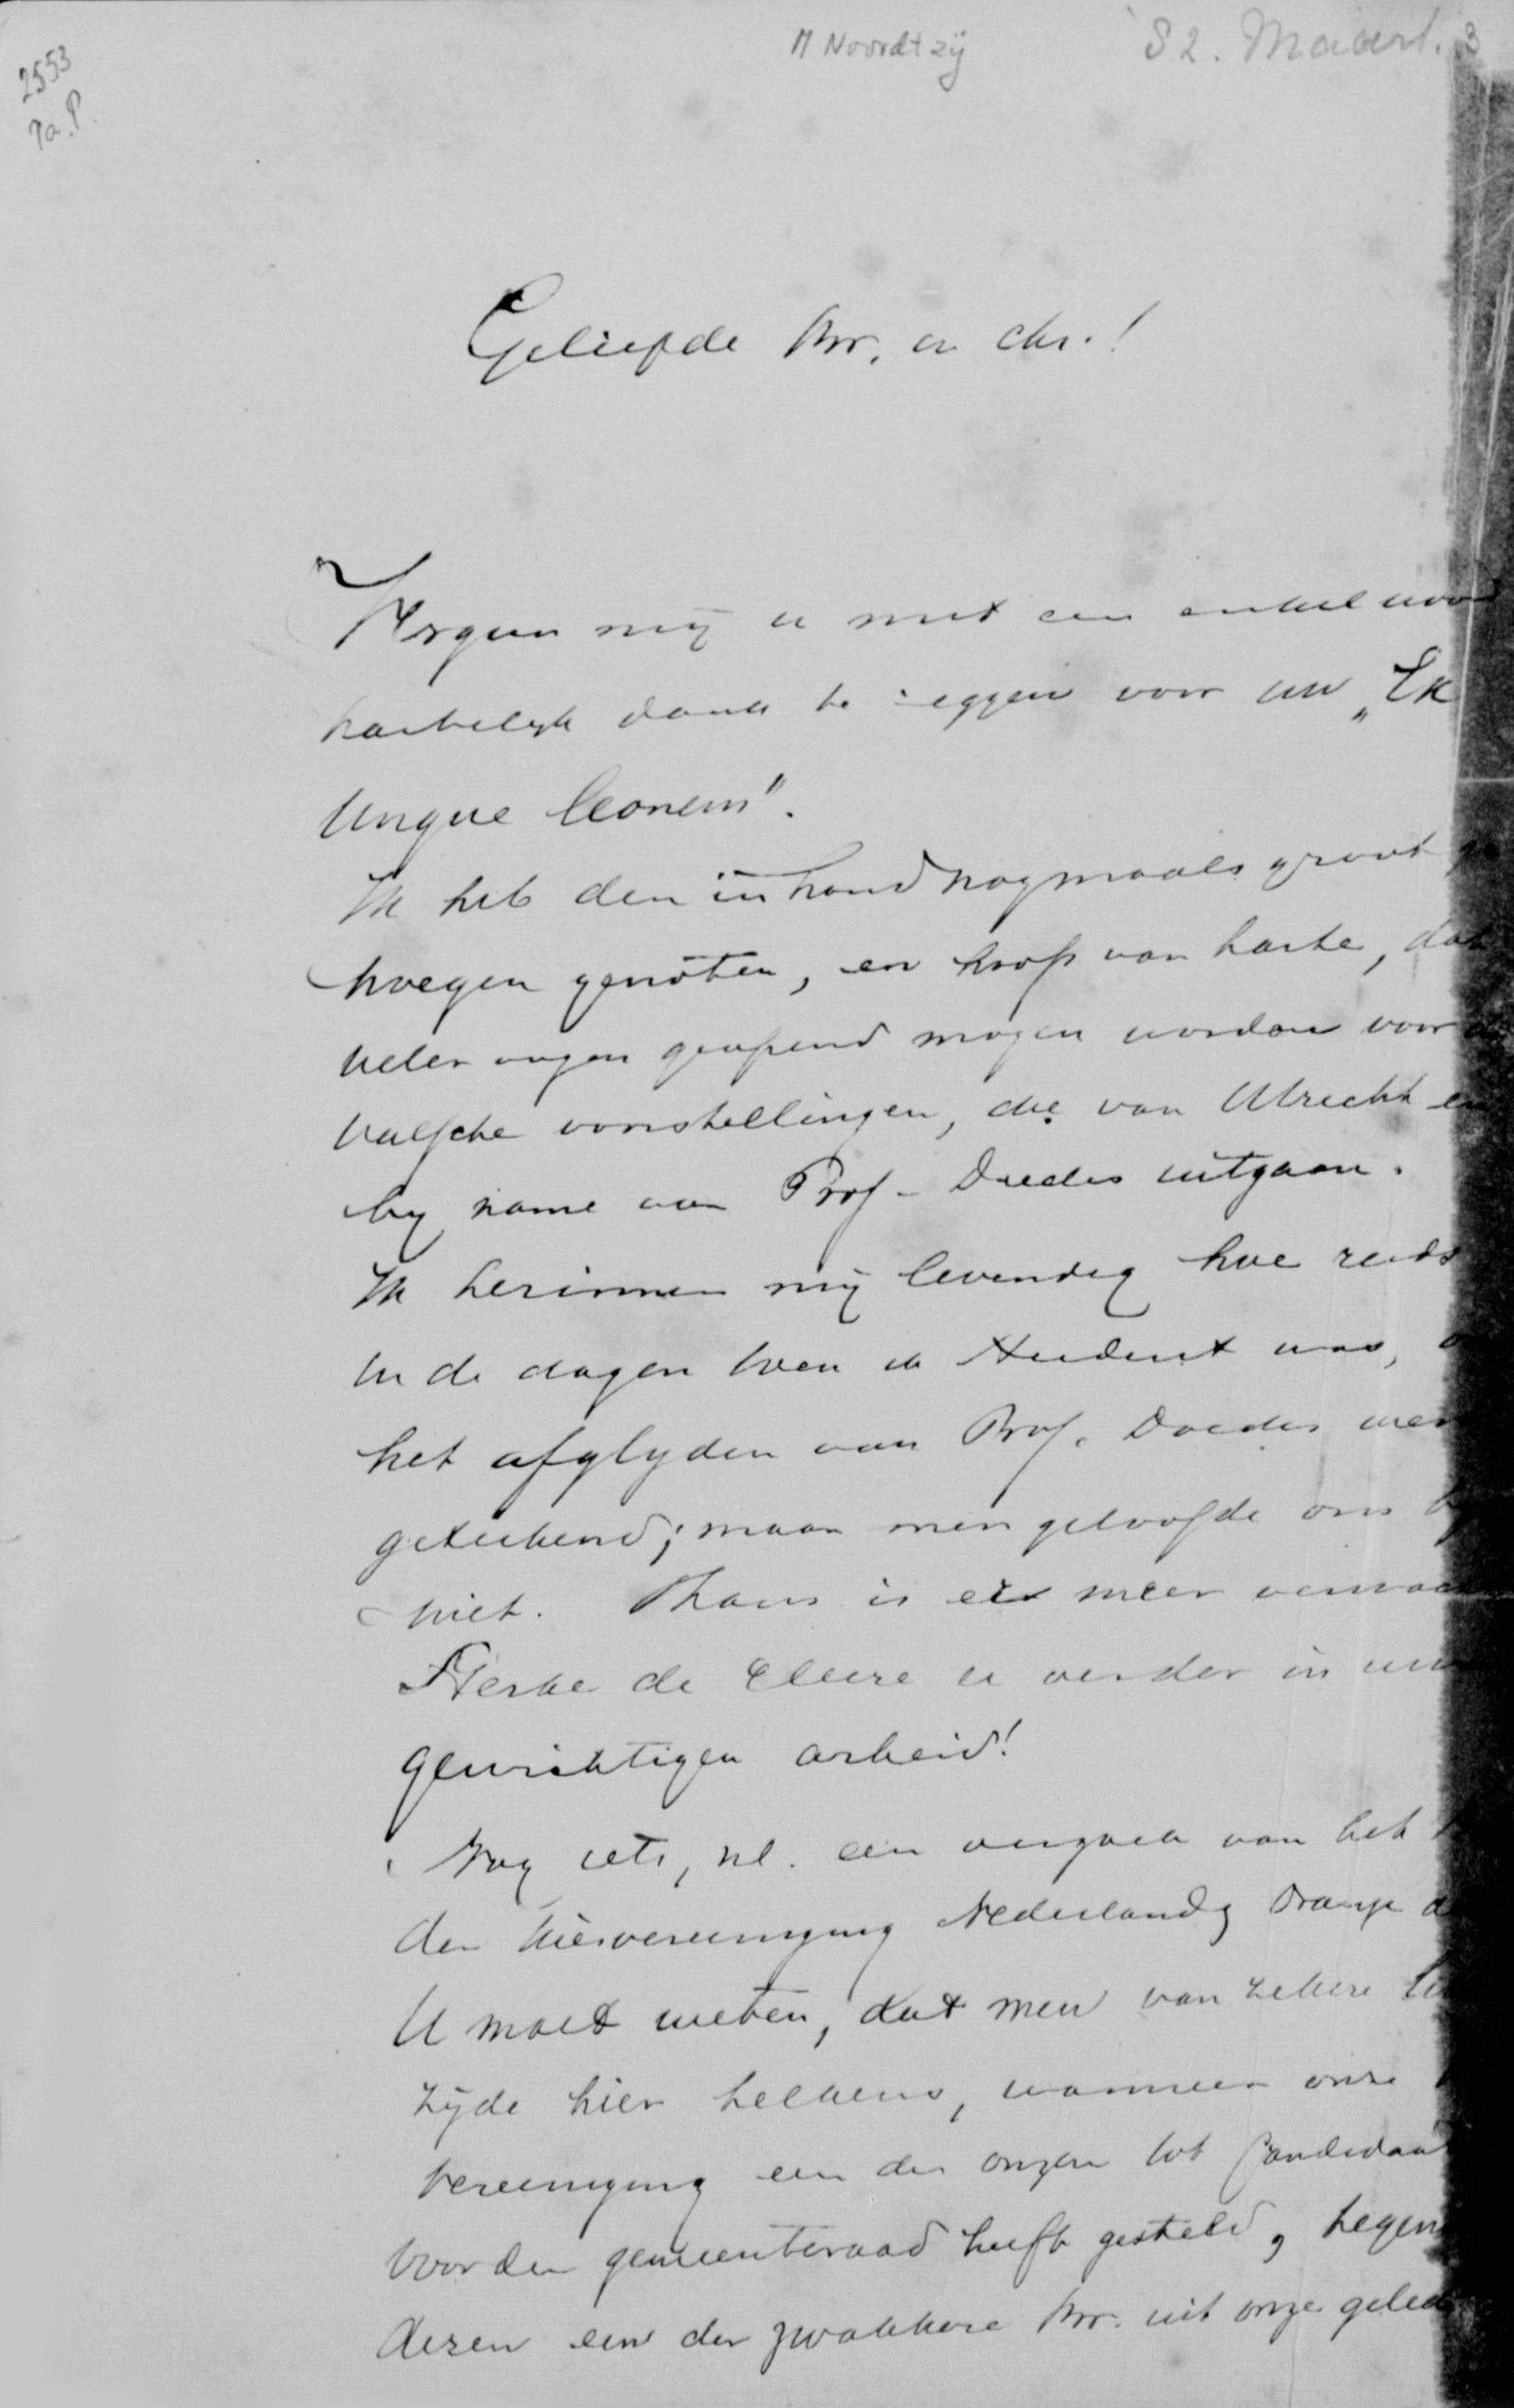 2553
Pa. P.
M Noordtzij
82. Maart. 3
Geliefde Br. in Chr.!
Vergun mij U met een enkel woord
hartelijk dank te zeggen voor uw „Ex
Ungue Leonem".
Ik heb den inhoud nogmaals groot ge
noegen genoten, en hoop van harte, dat
veler oogen geopend mogen worden voor de
valsche voorstellingen, die van Utrecht en
bij name van Prof. Doedes uitgaan.
Ik herinner mij levendig hoe reeds
in de dagen toen ik student was,
het afglijden van Prof. Doedes werd
geteekend; maar men geloofde ons
niet. Thans is er meer
Sterke de Heere U verder in uw
gewichtigen arbeid!
Nog iets, nl. een van het
der Kiesvereeniging Nederland & Oranje
U moet weten, dat men van zekere
zijde hier telkens, wanneer onze
vereeniging een der onzen tot Candidaat
voor den gemeenteraad heeft gesteld, tegen
dezen een der zwakkere Br. uit onze geled